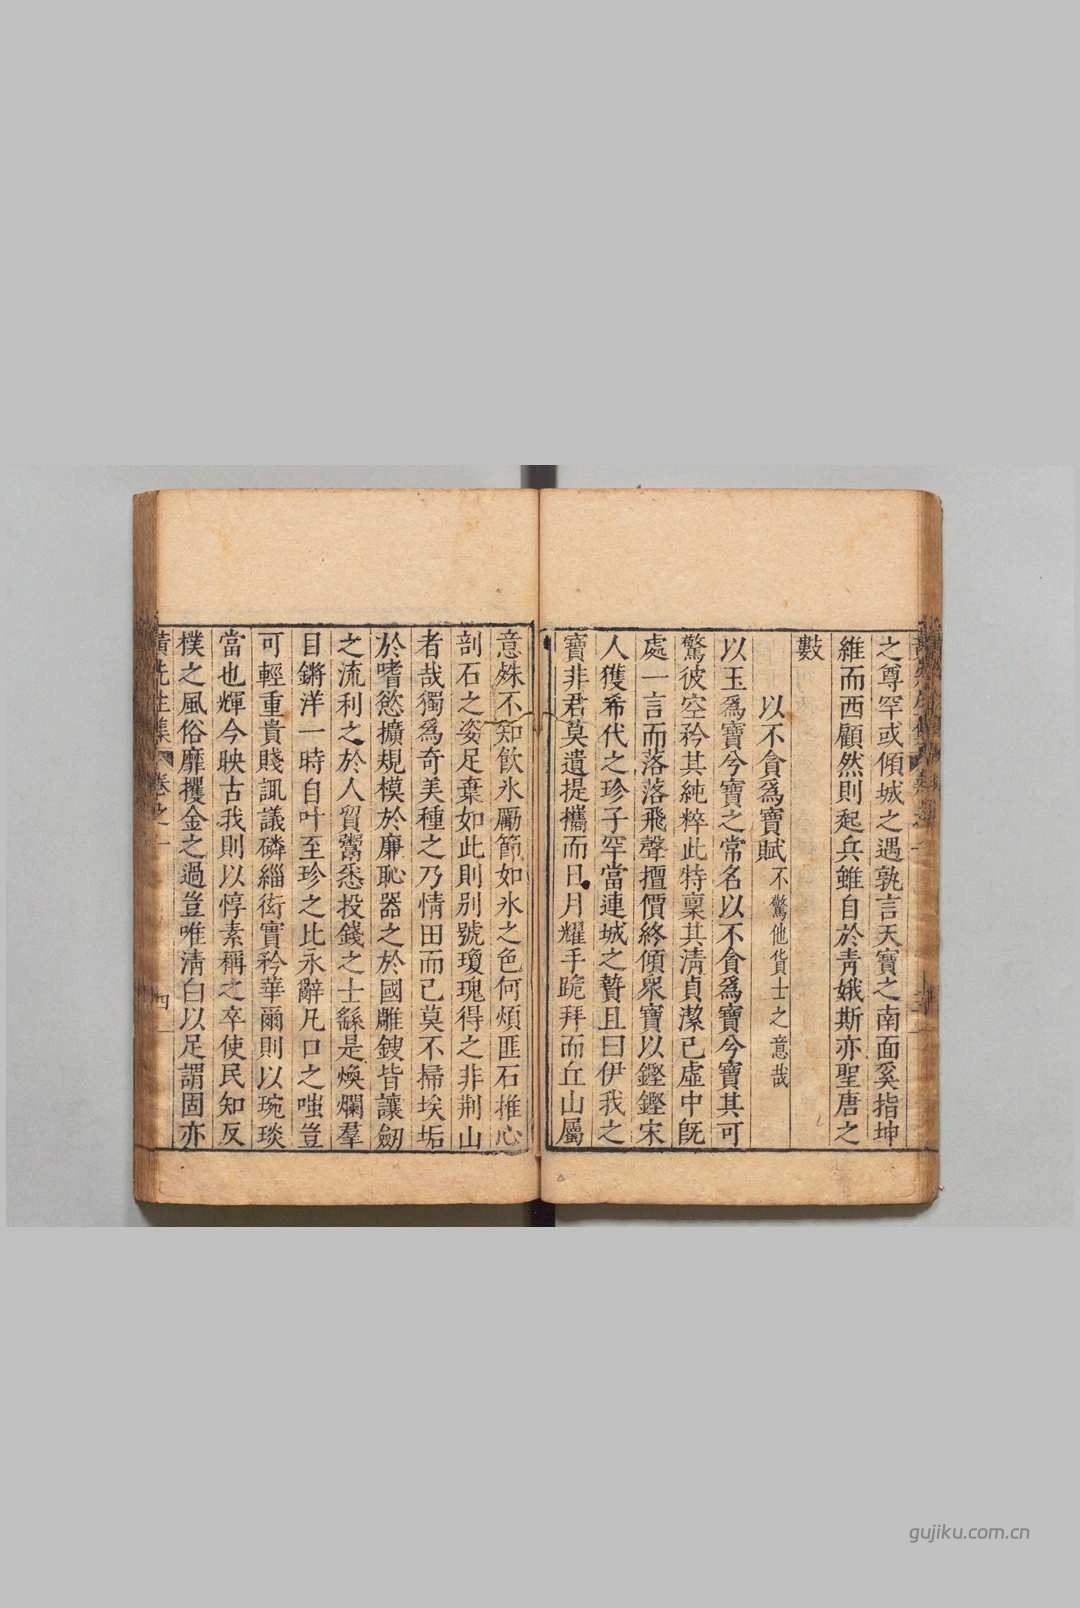 之尊罕或傾城之遇孰言天寶之南面奚指坤
維而西顧然則起兵雖自於青娥斯亦聖唐之
數
以不貪爲寶賦不驚他貨士之意哉
以玉爲寶兮寶之常名以不貪爲寶兮寶其可
驚彼空矜其純粹此特稟其淸貞潔己虛中旣
處一言而落落飛聲擅價終傾衆寶以鏗鏗宋
人獲希代之珍子罕當連城之贄且曰伊我之
寶非君莫遺提攜而日月耀手跪拜而丘山屬
意殊不知飮氷勵節如氷之色何煩匪石推心
剖石之姿足棄如此則別號瓊瑰得之非荆山
者哉獨爲奇美種之乃情田而已莫不掃埃垢
於嗜慾擴規模於廉恥器之於國雕鎪皆讓劒
之流利之於人貿鬻悉投錢之士繇是煥爛羣
目鏘洋一時自叶至珍之比永辭凡口之嗤豈
可輕重貴賤諷議磷緇衒實矜華爾則以琬琰
當也輝今映古我則以惇素稱之卒使民知反
樸之風俗靡攫金之過豈唯淸白以足謂固亦
黃先生集 卷之一 四
gujiku.com.cn